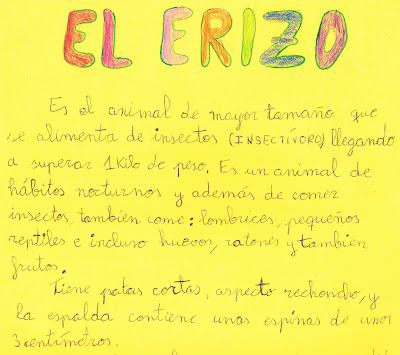 EL ERIZO
Es el animal de mayor tamaño que
se alimenta de insectos (INSECTÍVORO) llegando
a superar 1 Kilo de peso. Es un animal de
hábitos nocturnos y además de comer
insectos, tambien come: lombrices, pequeños
reptiles e incluso huevos, ratones y tambien
frutos.
Tiene patas cortas, aspecto rechoncho, y
la espalda contiene unas espinas de unos
3 centímetros.